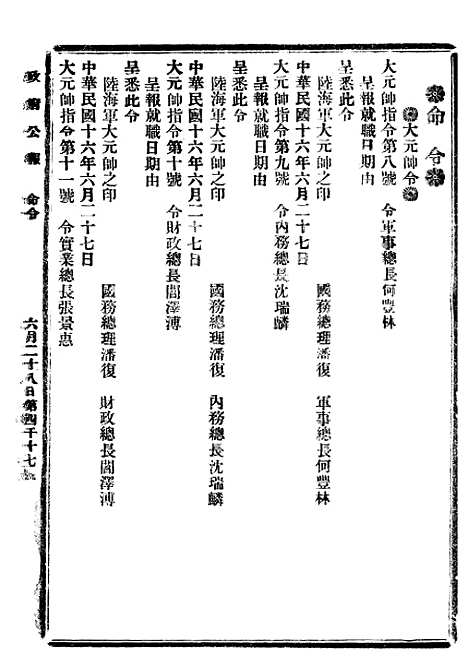 命令
大元帥令
大元帥指令第八號　令軍事總長何豐林
呈報就職日期由
呈悉此令
陸海軍大元帥之印　國務總理潘復　軍事總長何豐林
中華民國十六年六月二十七日
大元帥指令第九號　令內務總長沈瑞麟
呈報就職日期由
呈悉此令
陸海軍大元帥之印　國務總理潘復　內務總長沈瑞麟
中華民國十六年六月二十七日
大元帥指令第十號　令財政總長閻澤溥
呈報就職日期由
呈悉此令
陸海軍大元帥之印　國務總理潘復　財政總長閻澤溥
中華民國十六年六月二十七日
大元帥指令第十一號　令實業總長張景惠
政府公報　命令　六月二十八日第四千十七